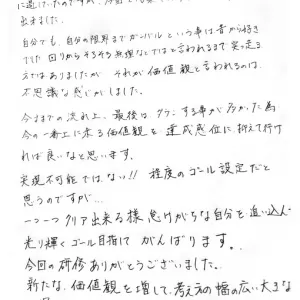 に避けたのですが、
出来ました。
自分でも、自分の限界までガンバルという事は昔から好き
でした 回りからそろそろ無理なとではと言われるまで突っ走る
方ではありましたが それが価値観と言われるのは、
不思議な感じがしました。
今までの流れ上、最後は する事が多かった為
今の一番上に来る価値観を達成感位に抑えて行け
れば良いなと思います。
実現不可能ではない!! 程度のゴール設定だと
思うのですが…
一つ一つクリア出来る様怠けがちな自分を追い込んで
光り輝くゴール目指して がんばります。
今回の研修ありがとうございました。
新たな価値観を増して、考え方の幅の広い大きな